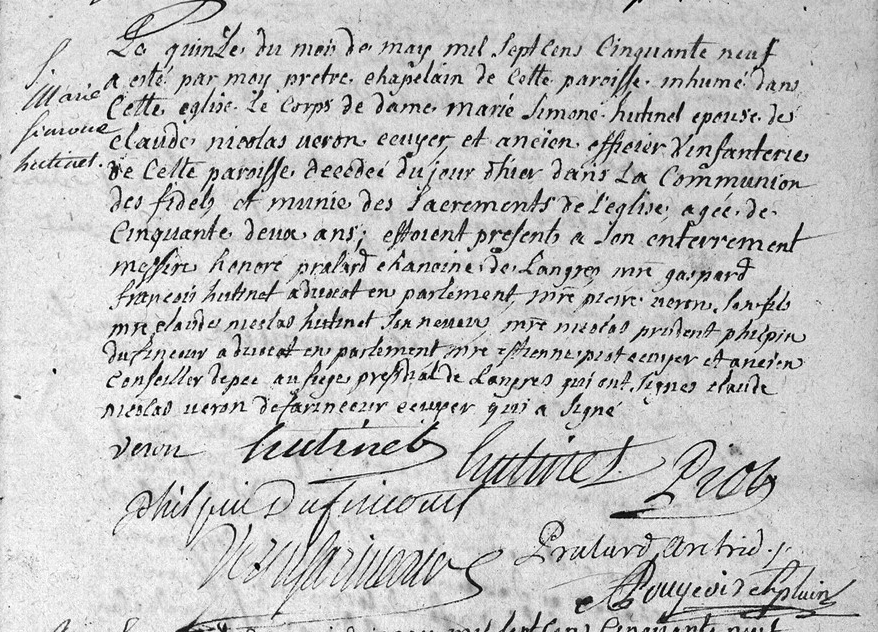 S.
Marie
simone
hutinet.
Le quinze du mois de may mil sept cens cinquante neuf
a esté par moy pretre chapelain de cette paroisse inhumé dans
cette eglise le corps de dame marie simone hutinet epouse de
claude nicolas veron ecuyer, et ancien officier d'infanterie
de cette paroisse decedeé du jour d'hier dans la communion
des fidels et munie des sacrements de l'eglise, ageé de
cinquante deux ans; estoient presents a son enterrement
messire honoré pralard chanoine de Langres, mre gaspard
françois hutinet advocat en parlement, mre pierre veron son fils
mre claude nicolas hutinet son neveu, mre nicolas prudent philpin
advocat en parlement mre estienne piot ecuyer et ancien
conseiller au siege presidial de Langres qui ont signés claude
nicolas veron ecuyer qui a signé
veron hutinet hutinet Piot
philpin
Pralard